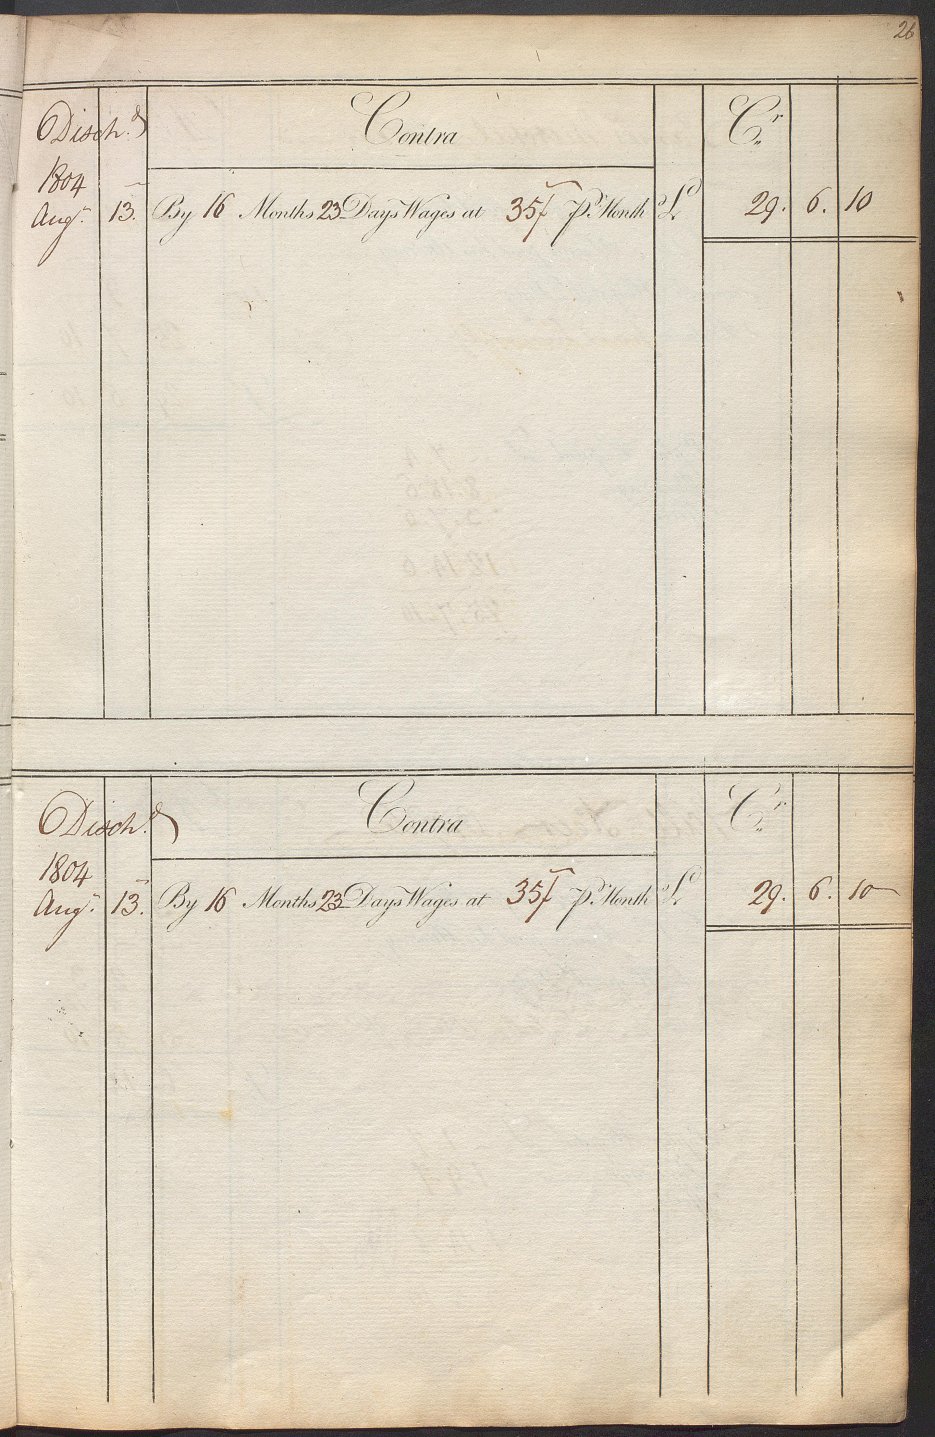 26
Disch.d Contra Cr
1804
Augt 13. By 16 Months 23 Days Wages at 35/ Pr Month £ 29. 6. 10
Disch.d Contra Cr
1804
Augt 13. By 16 Months 23 Days Wages at 35/ Pr Month £ 29. 6. 10